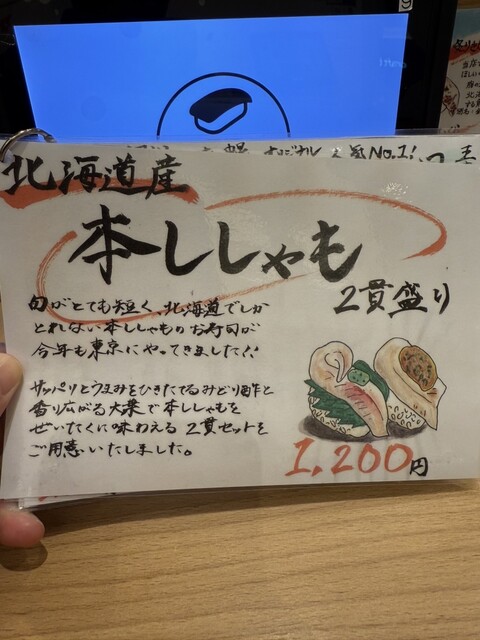 人気No.1!
北海道産
本ししゃも
2貫盛り
旬がとても短く、北海道でしか
とれない本ししゃものお寿司が
今年も東京にやってきました!!
サッパリとうまみをひきたてるみどり酢と
香り広がる大葉で本ししゃもを
ぜいたくに味わえる2貫セットを
ご用意いたしました。
1,200円